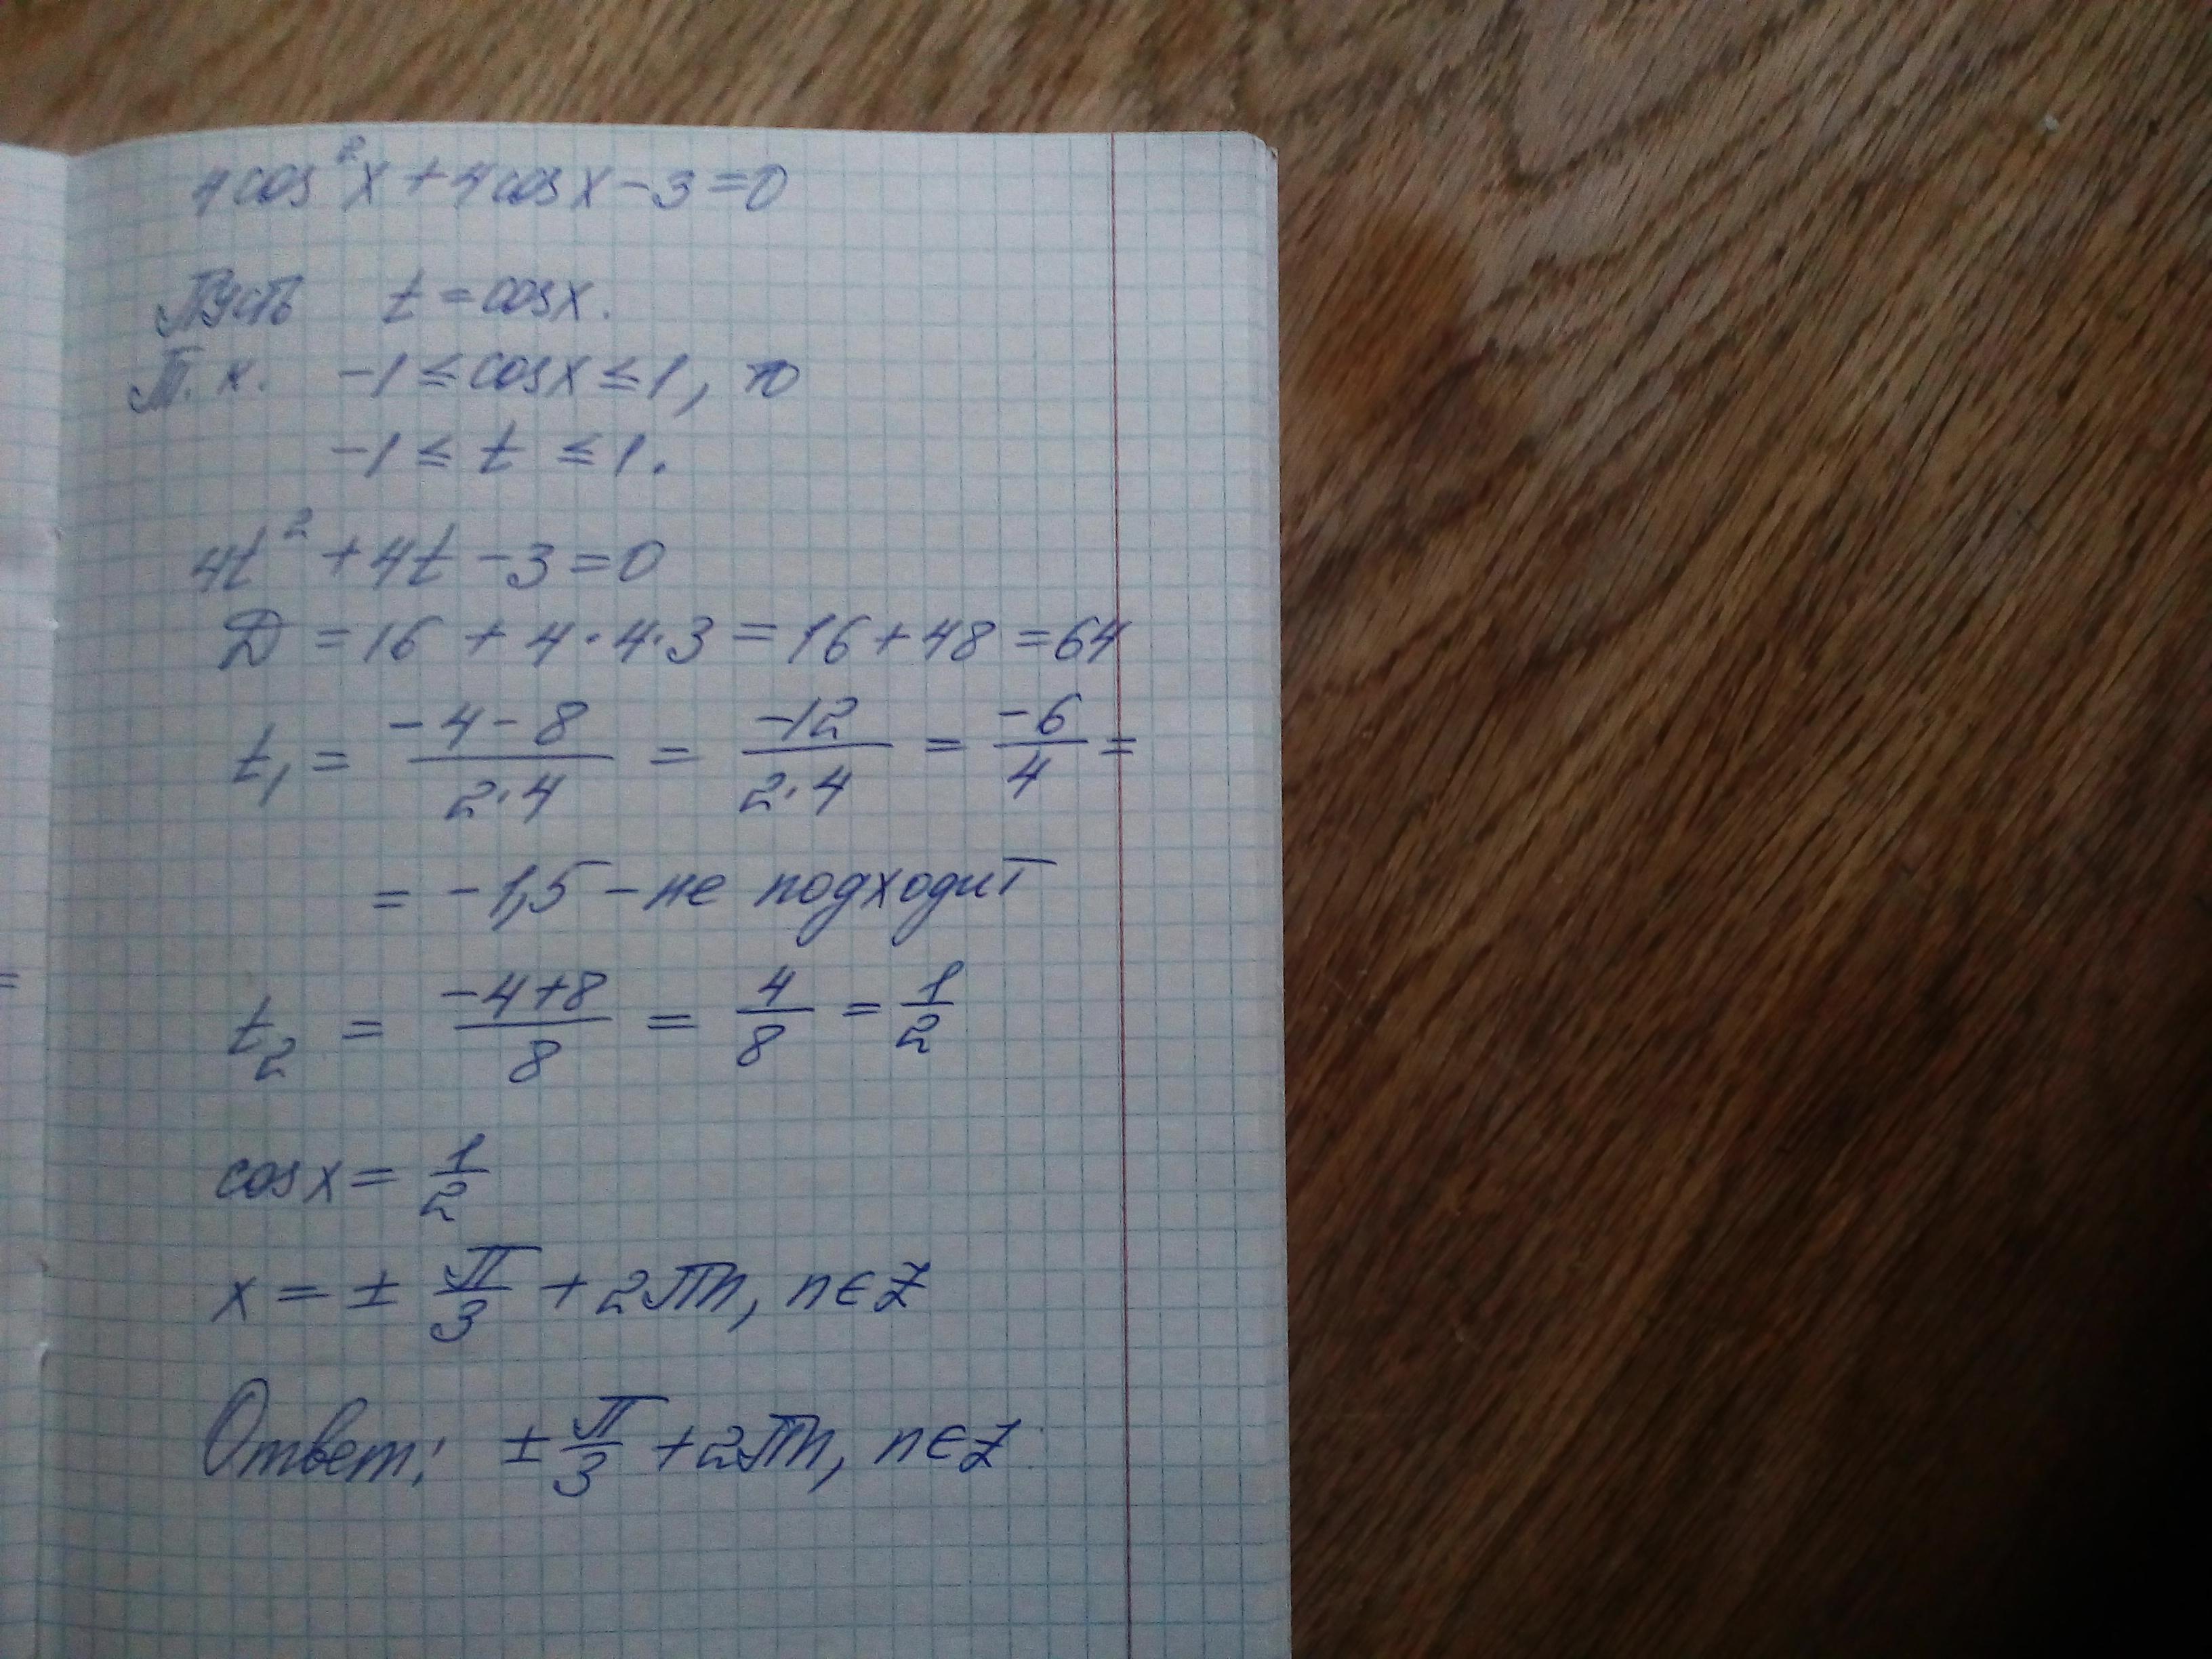 4cos²x+4cosx-3=0
Пусть t=cosx.
Т.к. -1≤cosx≤1, то
-1≤t≤1.
4t²+4t-3=0
Д=16+4·4·3=16+48=64
t₁ = (-4-8)/(2·4) = (-12)/(2·4) = (-6)/4 =
= -1,5 - не подходит
t₂ = (-4+8)/8 = 4/8 = 1/2
cosx = 1/2
x = ± π/3 + 2πn, n∈Z
Ответ: ± π/3 + 2πn, n∈Z.
=